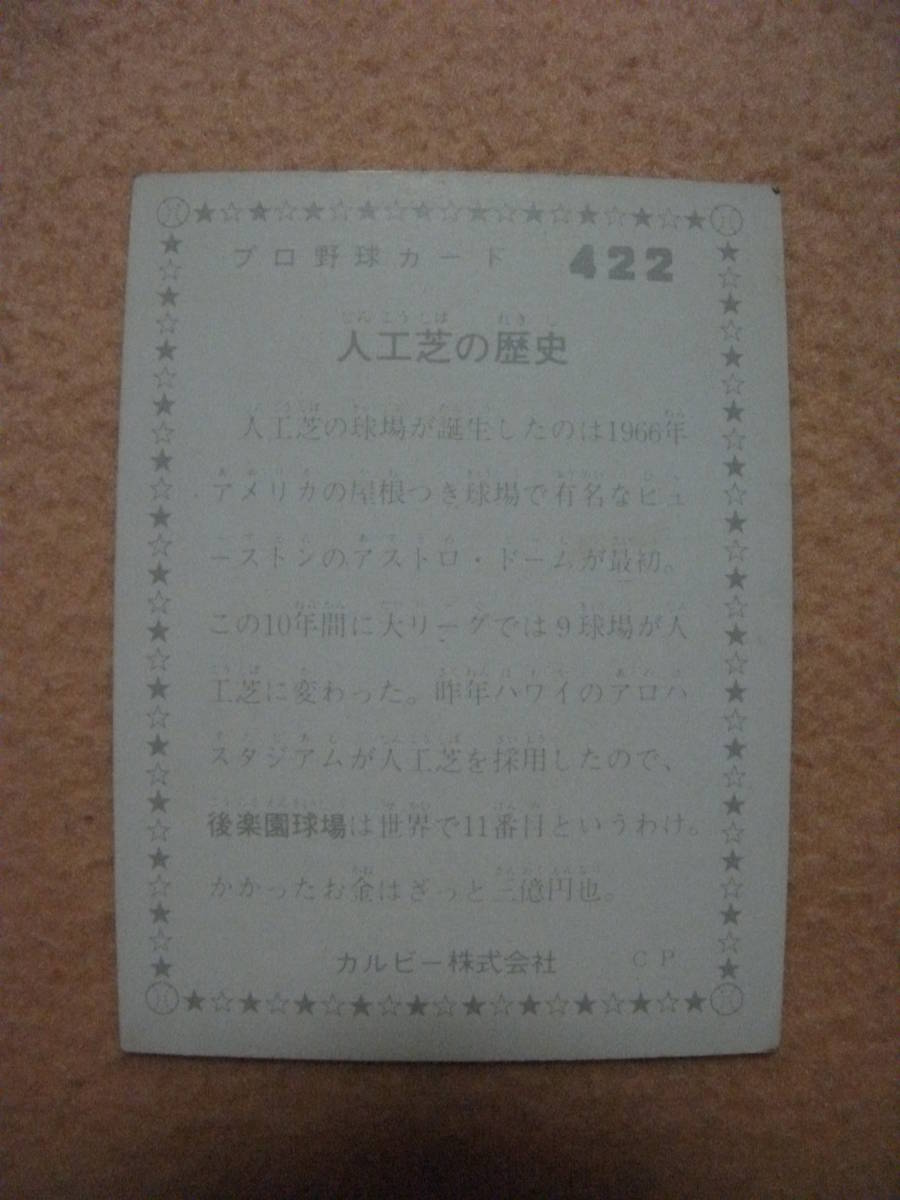 プロ野球カード 422
じんこうしば れきし
人工芝の歴史
人工芝の球場が誕生したのは1966年
アメリカの屋根つき球場で有名なヒュ
ーストンのアストロ・ドームが最初。
この10年間に大リーグでは9球場が人
工芝に変わった。昨年ハワイのアロハ
スタジアムが人工芝を採用したので、
後楽園球場は世界で11番目というわけ。
かかったお金はざっと三億円也。
カルビー株式会社 CP